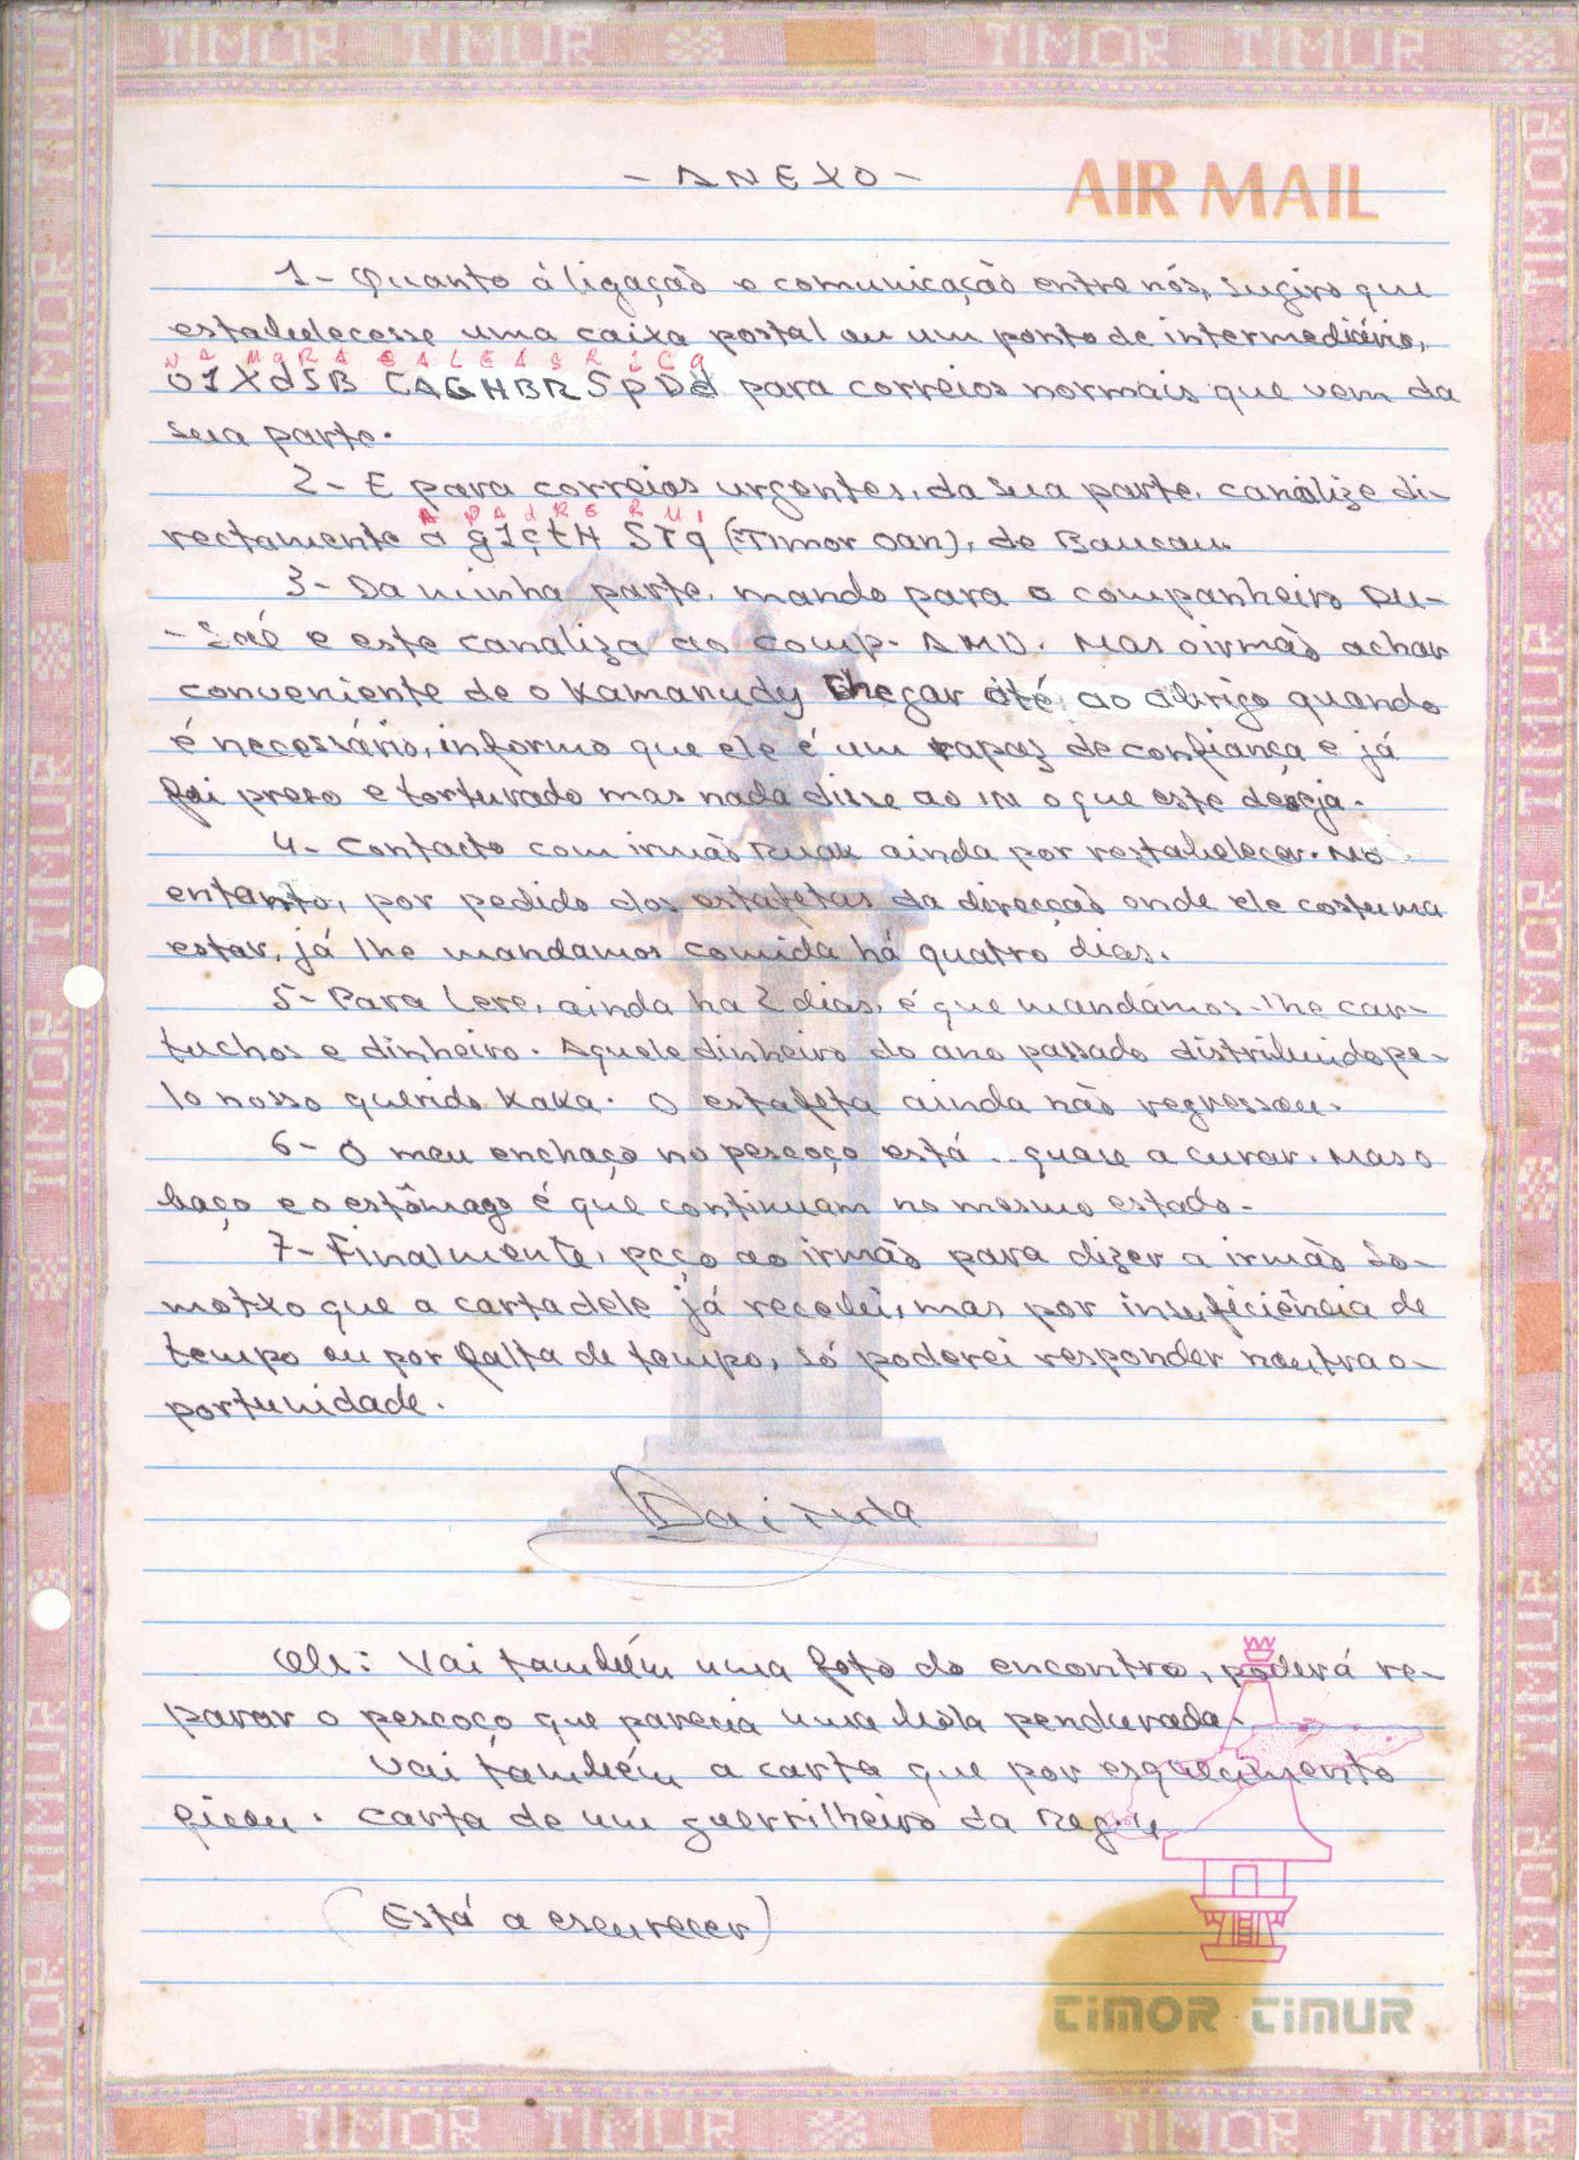 TIMOR TIMUR
TIMOR TIMUR
AIR MAIL
- ANEXO -
1- Quanto á ligação e comunicação entre nós, sugiro que
estabelecesse uma caixa postal ou um ponto de intermediário,
para correios normais que vem da
sua parte.
2- E para correios urgentes, da sua parte, canalize di-
A PADRE RUI
rectamente a g1çtH STq (Timor Oan), de Baucau.
3- Da minha parte, mando para o companheiro
e este canaliza ao comp. AMD. Mas o irmão achar
conveniente de o Kamanudy chegar até ao abrigo quando
é necessário, informo que ele é um rapaz de confiança e já
foi preso e torturado mas nada disse ao IN o que este deseja.
4- Contacto com irmão Ruak ainda por restabelecer. No
entanto, por pedido dos estafetas da direcção onde ele costuma
estar, já lhe mandamos comida há quatro dias.
5- Para Lere, ainda ha 2 dias, é que mandámos-lhe car-
tuchos e dinheiro. Aquele dinheiro do ano passado distribuido pe-
lo nosso querido Kaka. O estafeta ainda não regressou.
6- O meu enchaço no pescoço está quase a curar. Mas o
baço e o estômago é que continuam no mesmo estado.
7- Finalmente, peço ao irmão para dizer a irmão So-
motxo que a carta dele já recebi, mas por insuficiência de
tempo ou por falta de tempo, só poderei responder noutra o-
portunidade.
Obs: Vai também uma foto do encontro, poderá re-
parar o pescoço que parecia uma bola pendurada.
Vai também a carta que por esquecimento
ficou. Carta de um guerrilheiro da Reg.
(Está a escurecer)
TIMOR TIMUR
TIMOR TIMUR
TIMOR TIMUR